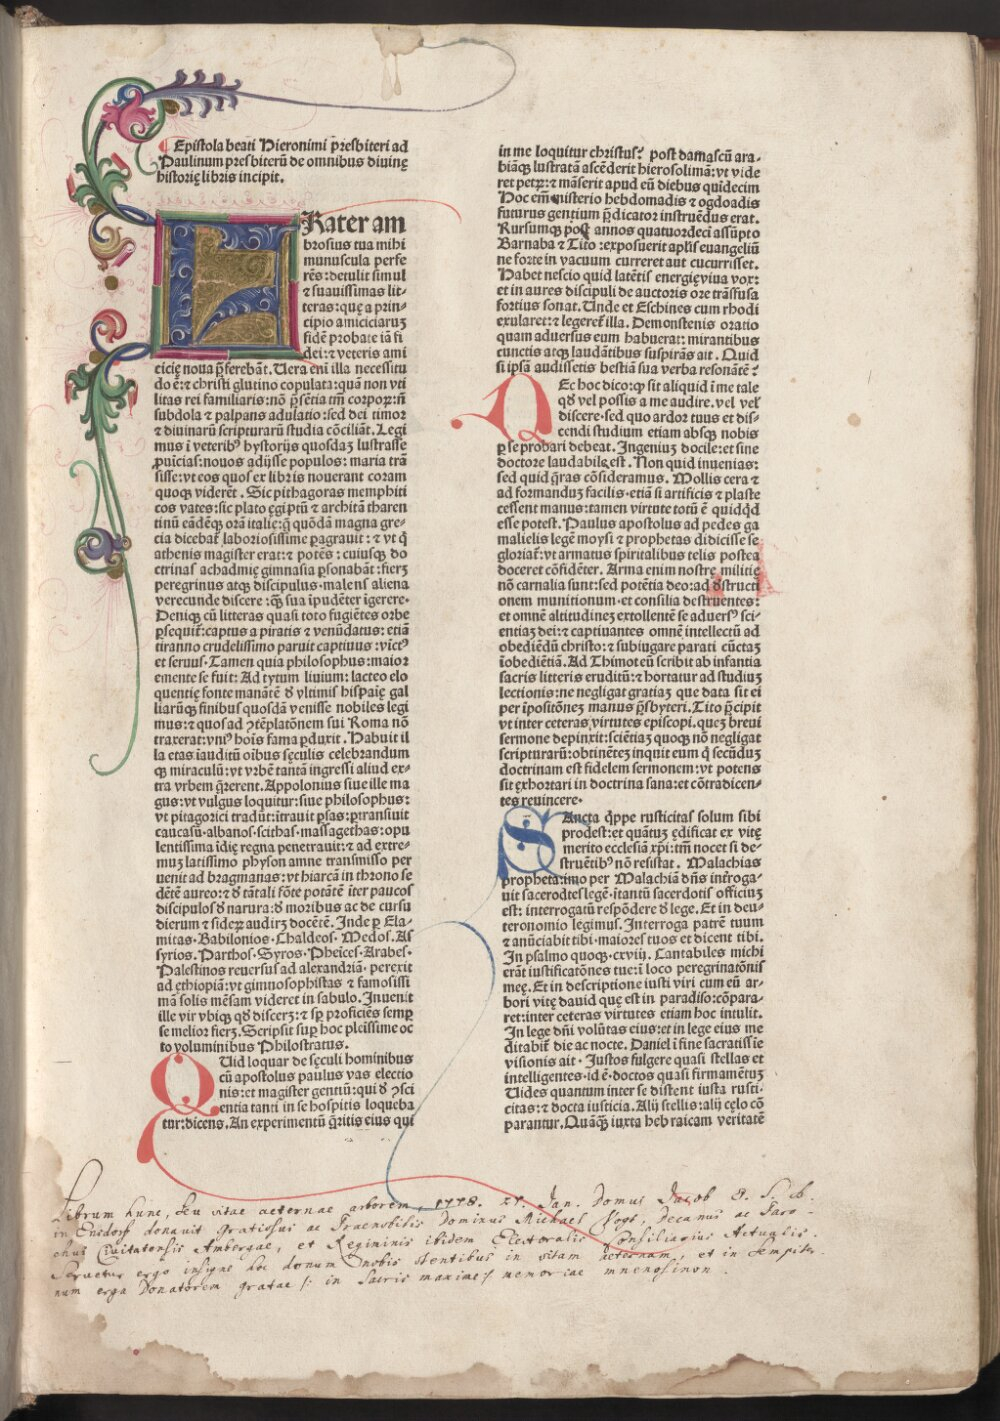 Epistola beati Hieronimi p̄resbiteri ad
Paulinum presbiterū de omnibus diuinę
historię libris incipit.
FRater am
brosius tua mihi
munuscula perfe
rēs: detulit simul
⁊ suauissimas lit-
teras: quę a prin-
cipio amiciciaruȝ
fidē probate iā fi
dei: ⁊ veteris ami
cicię noua p̄ferebāt. Uera em̄ illa necessitu
do ē: ⁊ christi glutino copulata: quā non vti
litas rei familiaris: nō p̄sētia tm̄ corpoꝝ: n̄
subdola ⁊ palpans adulatio: sed dei timor
⁊ diuinarū scripturarū studia cōciliāt. Legi
mus ī veteribꝰ hystorijs quosdaȝ lustrasse
ꝓuīcias: nouos adijsse populos: maria trā
sisse: vt eos quos ex libris nouerant coram
quoqȝ viderēt. Sic pithagoras memphiti
cos vates: sic plato ęgiptū ⁊ architā tharen
tinū eādēqȝ orā italię: q̄ quōdā magna gre-
cia dicebat̄ laboriosissime ꝑagrauit: ⁊ vt q̄
athenis magister erat: ⁊ potēs: cuiusqȝ do
ctrinas achadmię gimnasia ꝑsonabāt: fierȝ
peregrinus atqȝ discipulus · malens aliena
verecunde discere: qȝ̄ sua īpudēter īgerere ·
Deniqȝ cū litteras quasi toto fugiētes orbe
ꝑsequit̄: captus a piratis ⁊ venūdatus: etiā
tiranno crudelissimo paruit captiuus: vīctꝰ
et seruus · Tamen quia philosophus: maior
emente se fuit: Ad tytum liuium: lacteo elo
quentię fonte manātē ꝺ vltimis hispaię gal
liarūqȝ finibus quosdā venisse nobiles legi
mus: ⁊ quos ad ꝯtēplatōnem sui Roma nō
traxerat: vniꝰ hoīs fama ꝑduxit. Habuit il
la etas īauditū oībus sęculis celebrandum
qȝ miraculū: vt vrbē tantā ingressi aliud ex-
tra vrbem q̄rerent. Appolonius siue ille ma
gus: vt vulgus loquitur: siue philosophus:
vt pitagorici tradūt: ītrauit ꝑsas: ꝑtransiuit
caucasū · albanos · scithas · massagethas: opu
lentissima īdię regna penetrauit: ⁊ ad extre-
muȝ latissimo physon amne transmisso per
uenit ad bragmanas: vt hiarcā in throno se
dētē aureo: ⁊ ꝺ tātali fōte potātē īter paucos
discipulos ꝺ narura: ꝺ moribus ac de cursu
dierum ⁊ sideꝝ audirȝ docētē. Inde ꝑ Ela-
mitas · Babilonios · Chaldeos · Medos. As
syrios. Parthos · Syros · Pheīces · Arabes ·
Palestinos reuersus ad alexandriā · perexit
ad ęthiopiā: vt gimnosophistas ⁊ famosissi
mā solis mēsam videret in sabulo. Inuenit
ille vir vbiqȝ qꝺ discerȝ: ⁊ sꝑ proficiēs semꝑ
se melior fierȝ. Scripsit suꝑ hoc pleīssime oc
to voluminibus Philostratus.
QUid loquar de sęculi hominibus
cū apostolus paulus vas electio
nis: et magister gentiū: qui ꝺ ꝯsci
entia tanti in se hospitis loqueba
tur: dicens. An experimentū q̄ritis eius qui
in me loquitur christus? post damascū ara-
biāqȝ lustratā ascēderit hierosolimā: vt vide
ret petrꝝ: ⁊ māserit apud eū diebus quīdecim
Hoc em̄ misterio hebdomadis ⁊ ogdoadis
futurus gentium p̄dicator instruēdus erat.
Rursumqȝ post annos quatuordeci assūpto
Barnaba ⁊ Tito: exposuerit apl̄is euangeliū
ne forte in vacuum curreret aut cucurrisset.
Habet nescio quid latētis energię viua vox:
et in aures discipuli de auctoris ore trāsfusa
fortius sonat. Unde et Eschines cum rhodi
exularet: ⁊ legeret̄ illa. Demostenis oratio
quam aduersus eum habuerat: mirantibus
cunctis atqȝ laudātibus suspirās ait. Quid
si ipsā audissetis bestiā sua verba resonātē?
QEc hoc dico: qȝ sit aliquid ī me tale
qꝺ vel possis a me audire. vel vel'
discere · sed quo ardor tuus et dis-
cendi studium etiam absqȝ nobis
ꝑ se probari debeat. Ingeniuȝ docile: et sine
doctore laudabile est. Non quid inuenias:
sed quid q̄ras cōsideramus. Mollis cera ⁊
ad formanduȝ facilis · etiā si artificis ⁊ plaste
cessent manus: tamen virtute totū ē quidqꝺ
esse potest. Paulus apostolus ad pedes ga
malielis legē moysi ⁊ prophetas didicisse se
gloriat̄: vt armatus spiritalibus telis postea
doceret cōfidēter. Arma enim nostrę militię
nō carnalia sunt: sed potētia deo: ad ꝺstructi
onem munitionum · et consilia destruentes:
et omnē altitudineȝ extollentē se aduersꝰ sci-
entiaȝ dei: ⁊ captiuantes omnē intellectū ad
obediēdū christo: ⁊ subiugare parati cūctaȝ
īobediētiā. Ad Thimoteū scribit ab infantia
sacris litteris eruditū: ⁊ hortatur ad studiuȝ
lectionis: ne negligat gratiaȝ que data sit ei
per īpositōneȝ manus p̄sbyteri. Tito p̄cipit
vt inter ceteras virtutes episcopi. queȝ breui
sermone depinxit: sciētiaȝ quoqȝ nō negligat
scripturarū: obtinētes inquit eum q̄ secūduȝ
doctrinam est fidelem sermonem: vt potens
sit ęxhortari in doctrina sana: et cōtradicen-
tes reuincere ·
SAncta q̄ppe rusticitas solum sibi
prodest: et quātuȝ ędificat ex vitę
merito ecclesiā xp̄i: tm̄ nocet si de-
struētibꝰ nō resistat. Malachias
propheta: imo per Malachiā dn̄s īnt̄roga-
uit sacerdotes legē · itantū sacerdotis officiuȝ
est: interrogatū respōdere ꝺ lege. Et in deu-
teronomio legimus. Interroga patrē tuum
⁊ anūciabit tibi · maiores tuos et dicent tibi.
In psalmo quoqȝ · cxviij. Cantabiles michi
erāt iustificatōnes tue: ī loco peregrinatōnis
meę. Et in descriptione iusti viri cum eū ar-
bori vitę dauid quę est in paradiso: cōpara-
ret: inter ceteras virtutes etiam hoc intulit.
In lege dn̄i volūtas eius: et in lege eius me
ditabit̄ die ac nocte. Daniel ī fine sacratissīe
visionis ait · Justos fulgere quasi stellas et
intelligentes · id ē · doctos quasi firmamētuȝ
Uides quantum inter se distent iusta rusti-
citas: ⁊ docta iusticia. Alij stellis: alij cęlo cō
parantur. Quāqȝ iuxta hebraicam veritatē
Librum hunc, seu vitae aeternae arborem, 1778. 21. Jan. Domui Jacob O. S. B.
in Ensdorf donavit Gratiosus ac Praenobilis Dominus Michael Vogt, Decanus ac Paro-
chus Civitatensis Ambergae, et Regiminis ibidem Electoralis Consiliarius Actualis.
Servetur ergo insigne hoc donum nobis ... in vitam aeternam, et in sempiter
num erga Donatorem gratae /: in sacris maximè :/ memoriae mnemosinon.